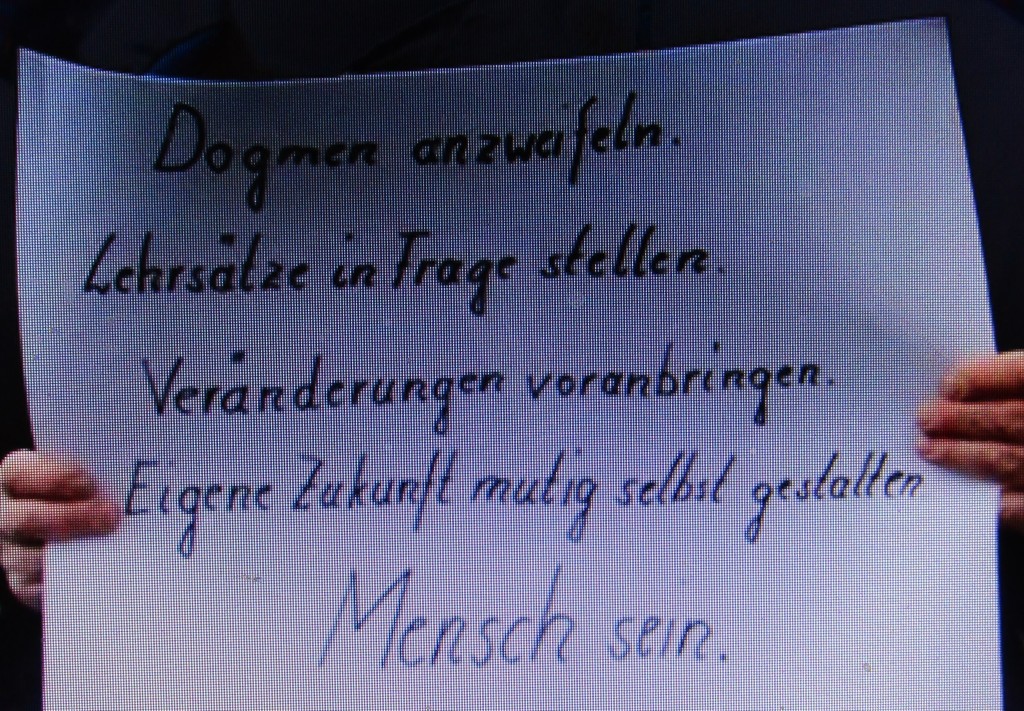 Dogmen anzweifeln.
Lehrsätze in Frage stellen.
Veränderungen voranbringen.
Eigene Zukunft mutig selbst gestalten
Mensch sein.